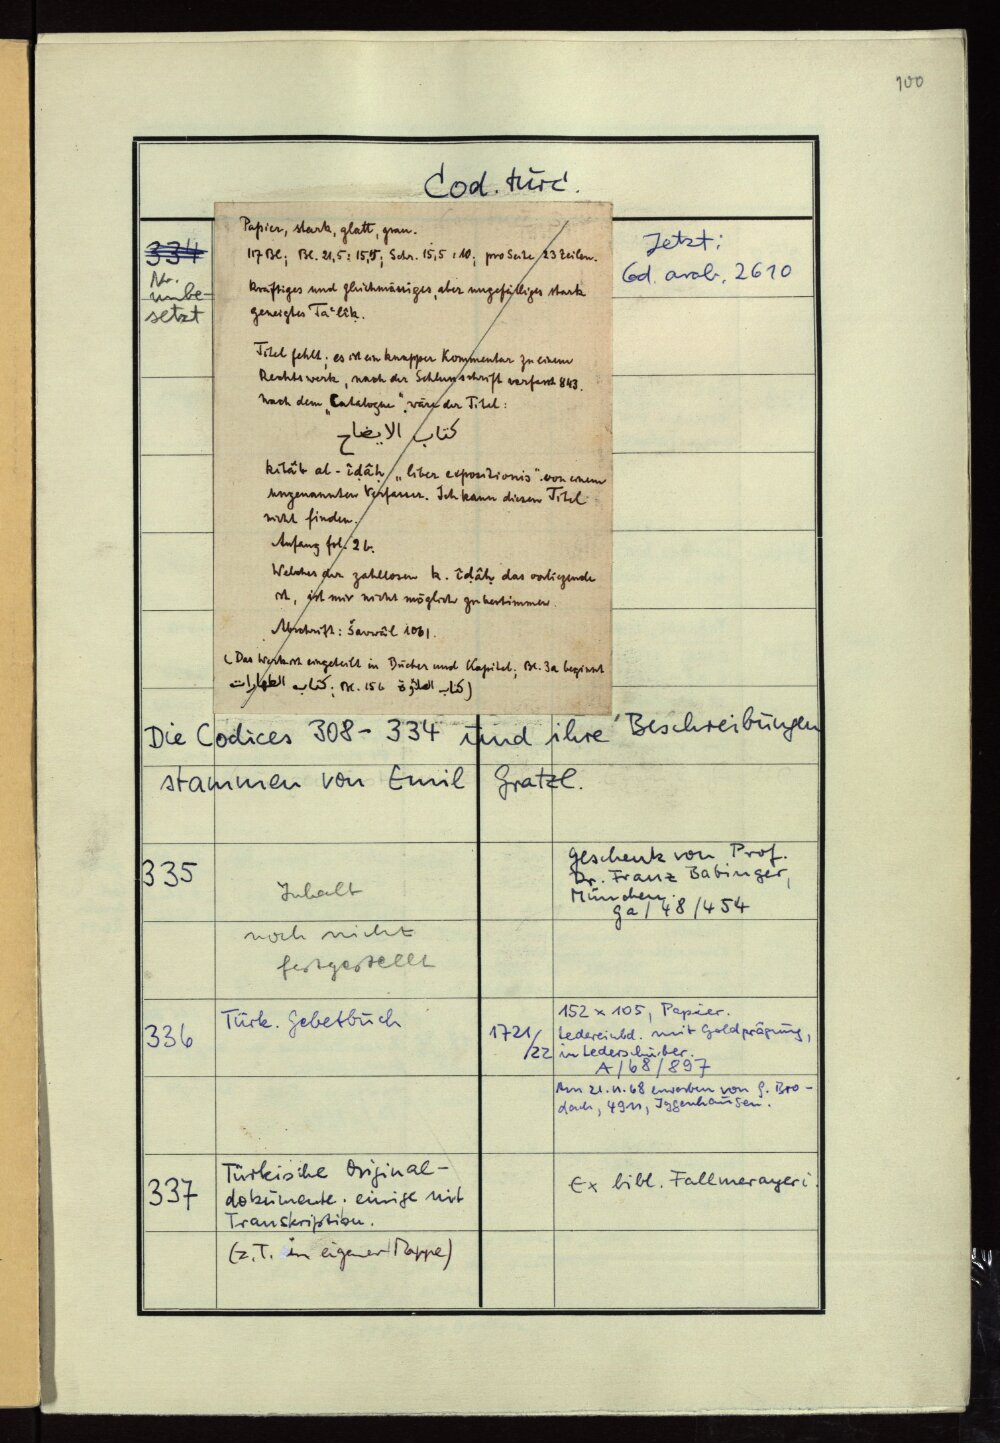 100
Cod. turc.
334
Nr.
unbe-
setzt
Papier, stark, glatt, grau.
117 Bl; Bl. 21,5 : 15,5; Schr. 15,5 : 10; pro Seite 23 Zeilen.
kräftiges und gleichmässiges, aber ungefälliges stark
geneigtes Taʿlîḳ.
Titel fehlt; es ist ein knapper Kommentar zu einem
Rechtswerk, nach der Schlussschrift verfasst 843.
Nach dem „Catalogue“ wäre der Titel:
كتاب الايضاح
kitâb al-îḍâḥ „liber expositionis“ von einem
ungenannten Verfasser. Ich kann diesen Titel
nicht finden.
Anfang fol. 2b.
Welches der zahllosen k. îḍâḥ das vorliegende
ist, ist mir nicht möglich zu bestimmen.
Abschrift: Šawwâl 1061.
(Das Werk ist eingeteilt in Bücher und Kapitel; Bl. 3a beginnt
كتاب الطهارات; Bl. 15b كتاب الصلوة)
Jetzt:
Cod. arab. 2610
Die Codices 308 - 334 und ihre Beschreibungen
stammen von Emil Gratzl.
335
Inhalt
noch nicht
festgestellt
Geschenk von Prof.
Dr. Franz Babinger,
München.
ga / 48 / 454
336
Türk. Gebetbuch
1721/
/22
152 x 105, Papier.
Ledereinbd. mit Goldprägung,
in Lederschuber.
A / 68 / 897
Am 21.11.68 erworben von G. Bro-
dach, 4911, Iggenhausen.
337
Türkische Original-
dokumente. einige mit
Transkription.
(z.T. in eigener Mappe)
Ex bibl. Fallmerayeri.